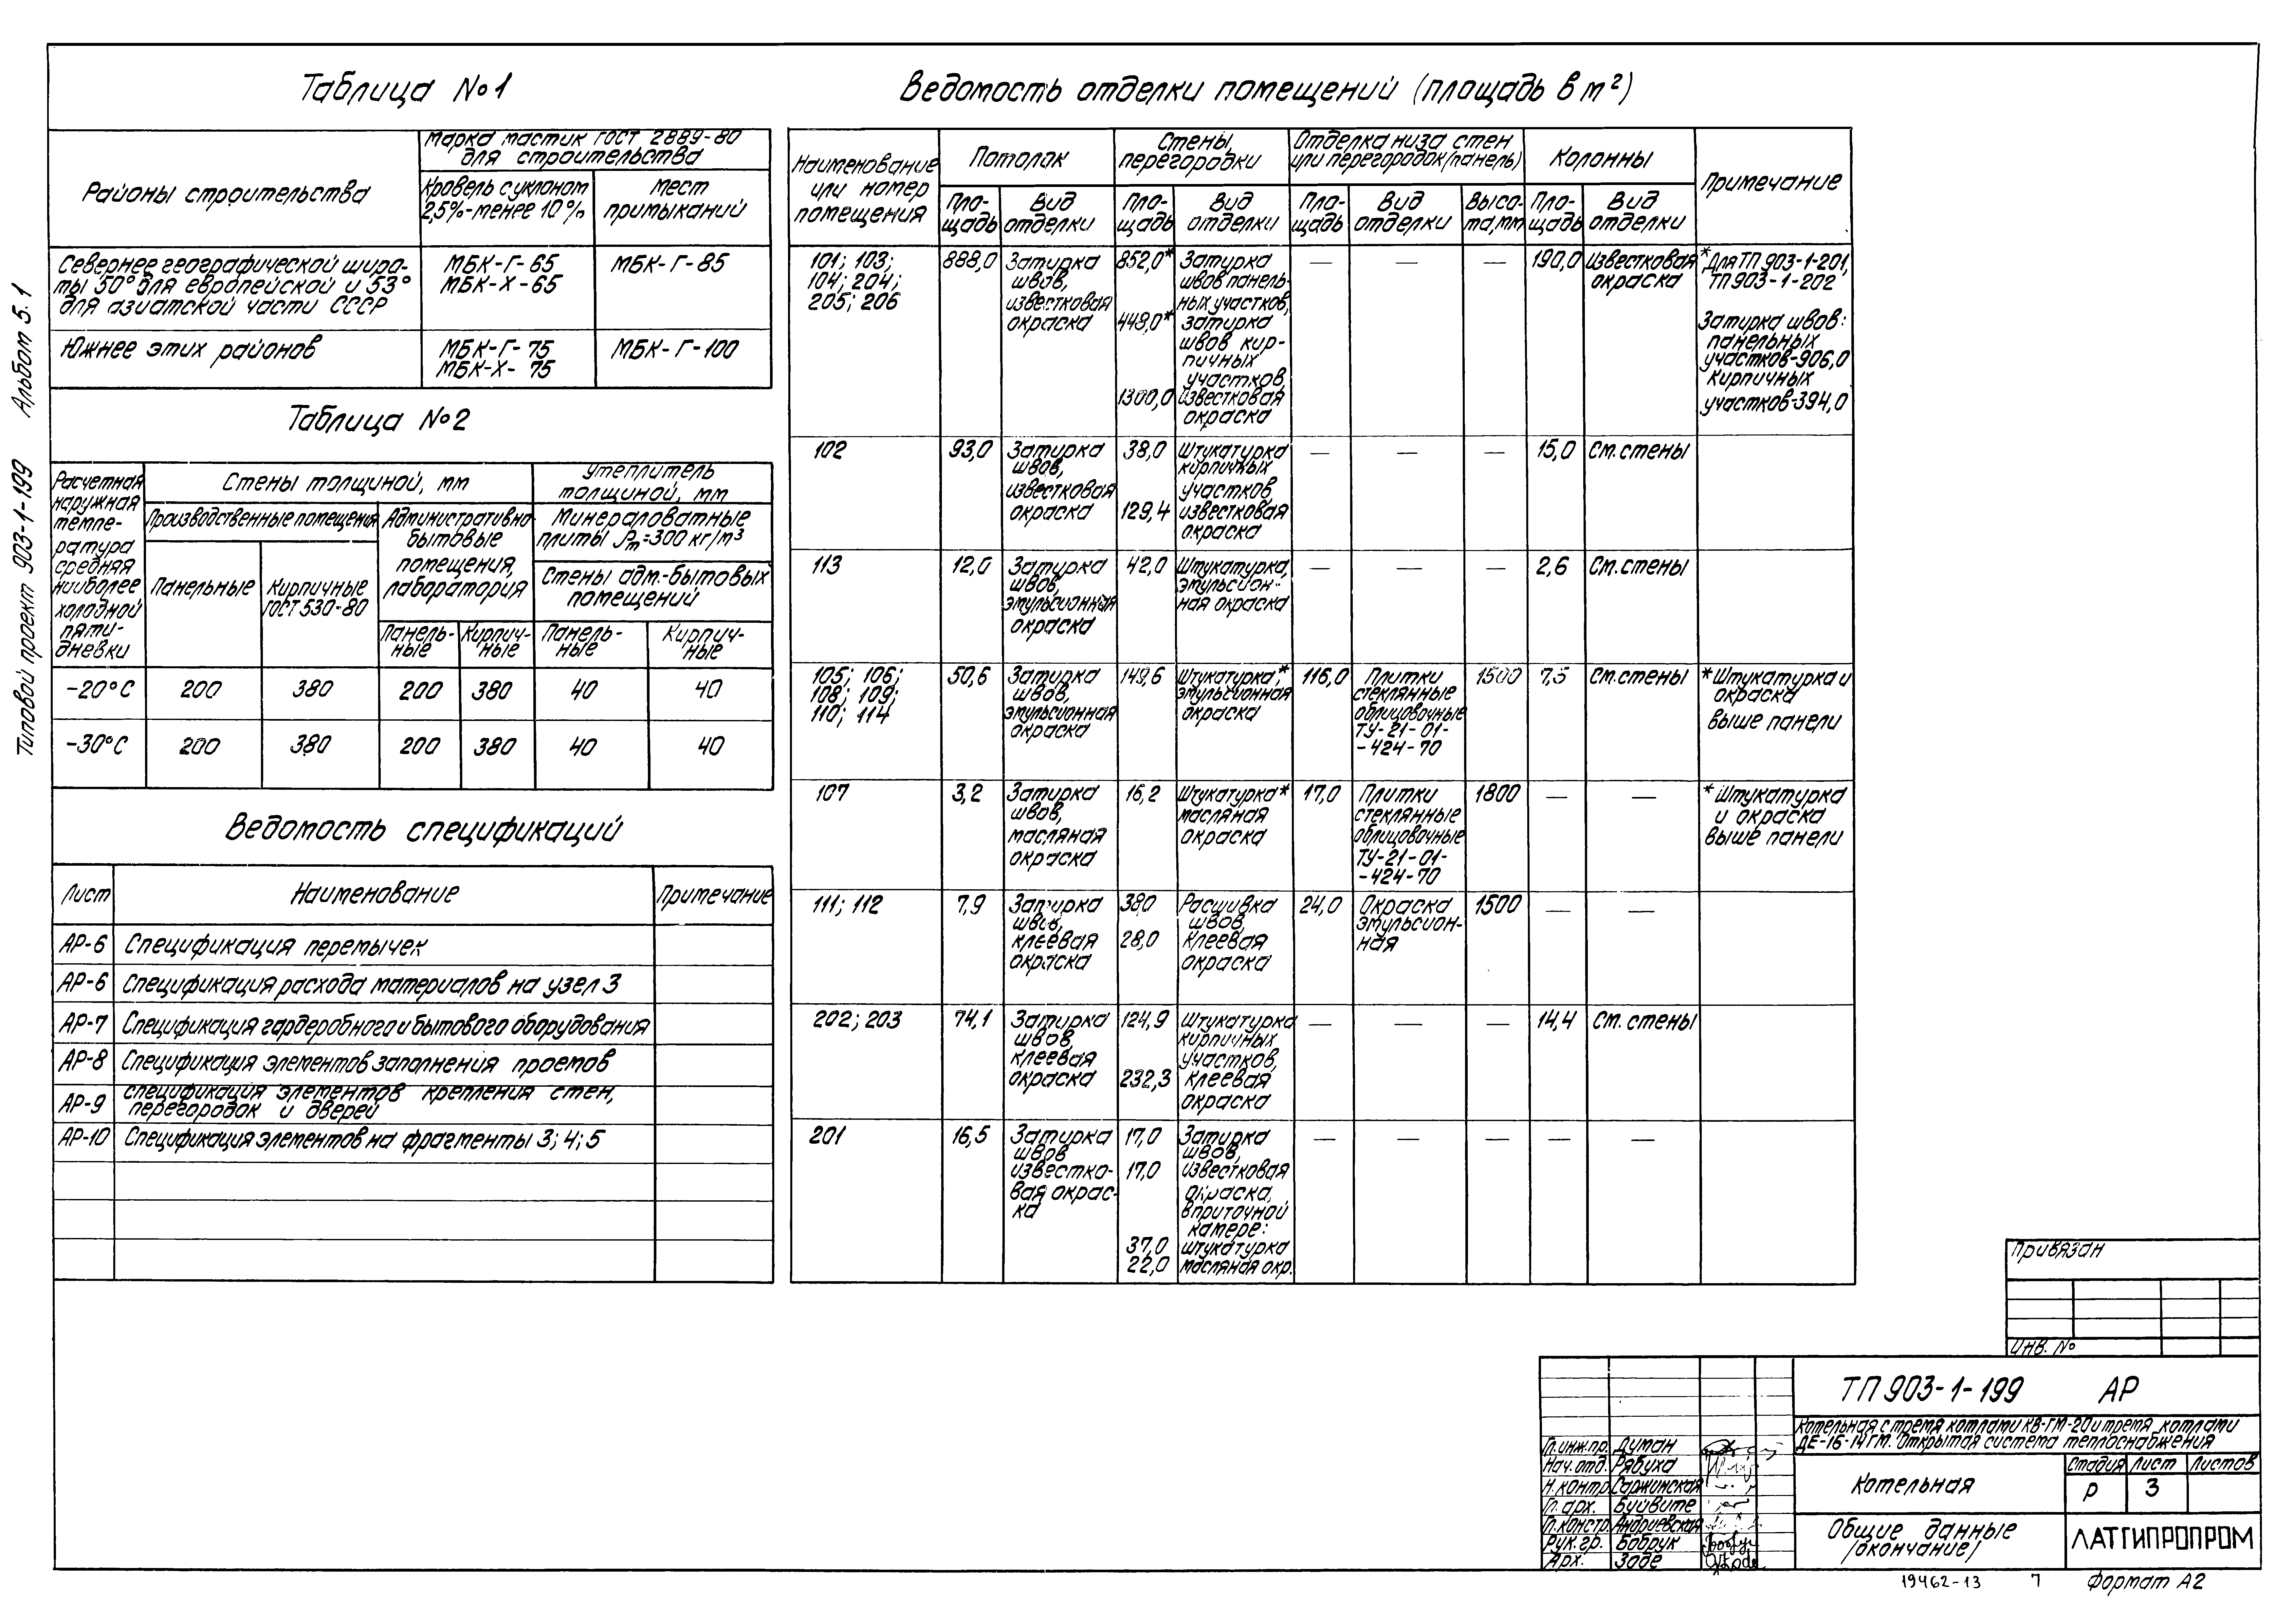 Типовой проект 903-1-199 Альбом 5.1
Таблица №1
Районы строительства
Марка мастик ГОСТ 2889-80
для строительства
Кровель с уклоном
2,5%-менее 10%
Мест
примыканий
Севернее географической широ-
ты 50° для европейской и 53°
для азиатской части СССР
МБК-Г-65
МБК-Х-65
МБК-Г-85
Южнее этих районов
МБК-Г-75
МБК-Х-75
МБК-Г-100
Таблица №2
Расчетная
наружная
темпе-
ратура
средняя
наиболее
холодной
пяти-
дневки
Стены толщиной, мм
Утеплитель
толщиной, мм
Производственные помещения
Административно-
бытовые
помещения,
лаборатория
Минераловатные
плиты ρm=300 кг/м³
Панельные
Кирпичные
ГОСТ 530-80
Стены адм.-бытовых
помещений
Панель-
ные
Кирпич-
ные
Панель-
ные
Кирпич-
ные
-20°С 200 380 200 380 40 40
-30°С 200 380 200 380 40 40
Ведомость спецификаций
Лист Наименование Примечание
АР-6 Спецификация перемычек
АР-6 Спецификация расхода материалов на узел 3
АР-7 Спецификация гардеробного и бытового оборудования
АР-8 Спецификация элементов заполнения проемов
АР-9 Спецификация элементов крепления стен,
перегородок и дверей
АР-10 Спецификация элементов на фрагменты 3; 4; 5
Ведомость отделки помещений (площадь в м²)
Наименование
или номер
помещения
Потолок
Стены,
перегородки
Отделка низа стен
или перегородок (панель)
Колонны
Примечание
Пло-
щадь
Вид
отделки
Пло-
щадь
Вид
отделки
Пло-
щадь
Вид
отделки
Высо-
та, мм
Пло-
щадь
Вид
отделки
101; 103;
104; 204;
205; 206
888,0
Затирка
швов,
известковая
окраска
852,0*
448,0*
1300,0
Затирка
швов панель-
ных участков,
затирка
швов кир-
пичных
участков,
известковая
окраска
— — —
190,0
Известковая
окраска
* Для ТП 903-1-201,
ТП 903-1-202
Затирка швов:
панельных
участков-906,0
Кирпичных
участков-394,0
102
93,0
Затирка
швов,
известковая
окраска
38,0
129,4
Штукатурка
кирпичных
участков,
известковая
окраска
— — —
15,0
См. стены
113
12,0
Затирка
швов,
эмульсионная
окраска
42,0
Штукатурка,
эмульсион-
ная окраска
— — —
2,6
См. стены
105; 106;
108; 109;
110; 114
50,6
Затирка
швов,
эмульсионная
окраска
149,6
Штукатурка,*
эмульсионная
окраска
116,0
Плитки
стеклянные
облицовочные
ТУ-21-01-
-424-70
1500
7,5
См. стены
* Штукатурка и
окраска
выше панели
107
3,2
Затирка
швов,
масляная
окраска
16,2
Штукатурка*
масляная
окраска
17,0
Плитки
стеклянные
облицовочные
ТУ-21-01-
-424-70
1800
— —
* Штукатурка
и окраска
выше панели
111; 112
7,9
Затирка
швов,
клеевая
окраска
380
28,0
Расшивка
швов,
Клеевая
окраска
24,0
Окраска
эмульсион-
ная
1500
— —
202; 203
74,1
Затирка
швов,
клеевая
окраска
124,9
232,3
Штукатурка
кирпичных
участков,
клеевая
окраска
— — —
14,4
См. стены
201
16,5
Затирка
швов
известко-
вая окрас-
ка
17,0
17,0
37,0
22,0
Затирка
швов,
известковая
окраска,
в приточной
камере:
штукатурка
масляная окр.
— — — — —
Привязан
Инв. №
ТП 903-1-199 АР
Котельная с тремя котлами КВ-ГМ-20 и тремя котлами
ДЕ-16-14ГМ. Открытая система теплоснабжения
Гл.инж.пр. Думан
Нач.отд. Рябуха
Н.контр. Саржинская
Гл.арх. Буйвите
Гл.констр. Андриевская
Рук.гр. Бобрук
Арх. Заде
Котельная
Стадия Лист Листов
Р 3
Общие данные
/окончание/
ЛАТГИПРОПРОМ
19462-13 7 Формат А2